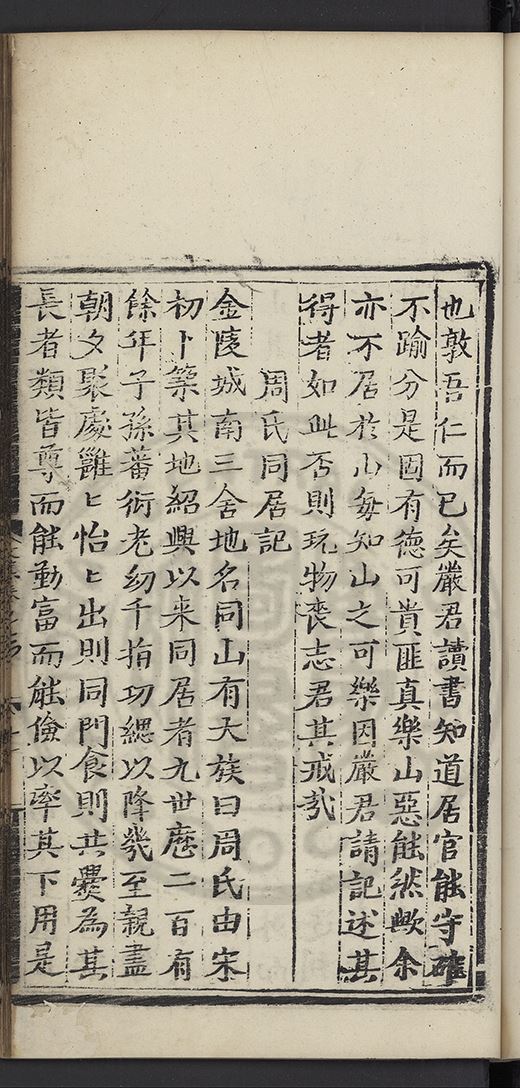 也敦吾仁而已矣嚴君讀書知道居官能守確
不踰分是固有德可貴匪真樂山惡能然歟余
亦不居於山每知山之可樂因嚴君請記述其
得者如此否則玩物喪志君其戒哉
周氏同居記
金陵城南三舍地名同山有大族曰周氏由宋
初卜築其地紹興以来同居者九世歷二百有
餘年子孫蕃衍老幼千指功緦以降幾至親盡
朝夕聚處雝〻怡〻出則同門食則共爨為其
長者類皆尊而能勤富而能儉以率其下用是